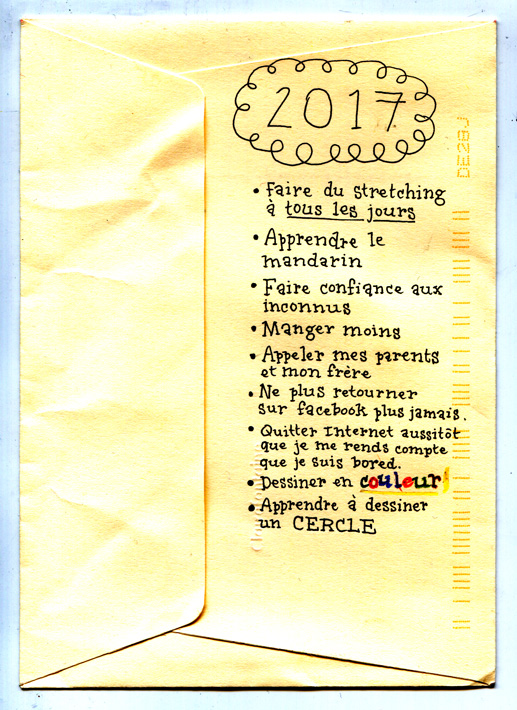 2017
• faire du stretching
à tous les jours
• Apprendre le
mandarin
• Faire confiance aux
inconnus
• Manger moins
• Appeler mes parents
et mon frère
• Ne plus retourner
sur facebook plus jamais.
• Quitter Internet aussitôt
que je me rends compte
que je suis bored.
• Dessiner en couleur
• Apprendre à dessiner
un CERCLE
DE28J